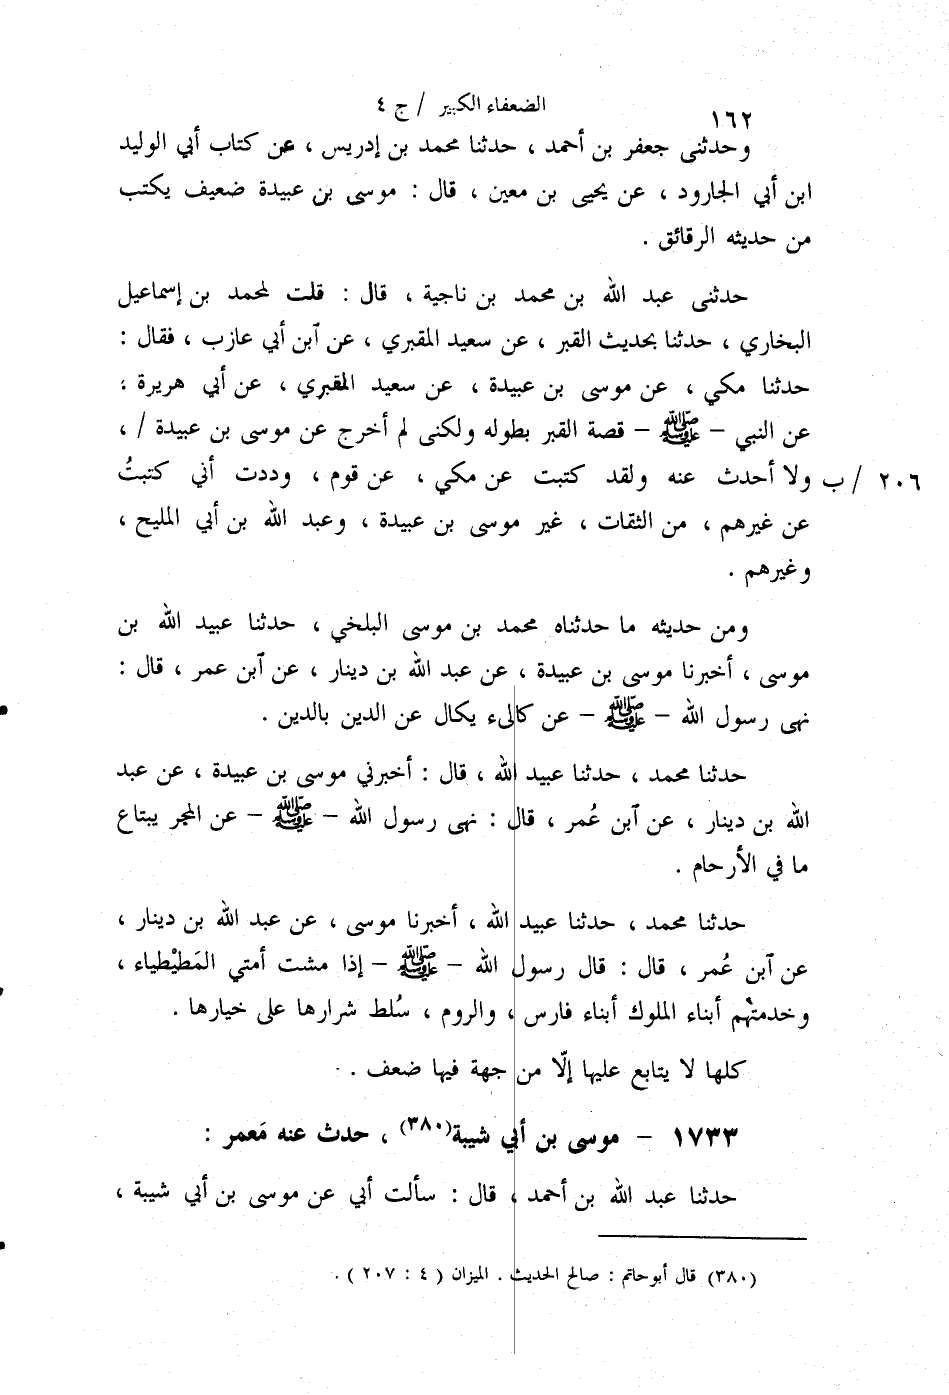 ١٦٢ الضعفاء الكبير / ج ٤
وحدثنى جعفر بن أحمد ، حدثنا محمد بن إدريس ، عن كتاب أبي الوليد
ابن أبي الجارود ، عن يحيى بن معين ، قال : موسى بن عبيدة ضعيف يكتب
من حديثه الرقائق .
حدثنى عبد الله بن محمد بن ناجية ، قال : قلت لمحمد بن إسماعيل
البخاري ، حدثنا بحديث القبر ، عن سعيد المقبري ، عن آبن أبي عازب ، فقال :
حدثنا مكي ، عن موسى بن عبيدة ، عن سعيد المقبري ، عن أبي هريرة ؛
عن النبي – ﷺ – قصة القبر بطوله ولكنى لم أخرج عن موسى بن عبيدة / ،
٢٠٦ / ب ولا أحدث عنه ولقد كتبت عن مكي ، عن قوم ، وددت أني كتبتُ
عن غيرهم ، من الثقات ، غير موسى بن عبيدة ، وعبد الله بن أبي المليح ،
وغيرهم .
ومن حديثه ما حدثناه محمد بن موسى البلخي ، حدثنا عبيد الله بن
موسى ، أخبرنا موسى بن عبيدة ، عن عبد الله بن دينار ، عن آبن عمر ، قال :
نهى رسول الله – ﷺ – عن كالىء يكال عن الدين بالدين .
حدثنا محمد ، حدثنا عبيد الله ، قال : أخبرني موسى بن عبيدة ، عن عبد
الله بن دينار ، عن آبن عُمر ، قال : نهى رسول الله – ﷺ – عن المجر يبتاع
ما في الأرحام .
حدثنا محمد ، حدثنا عبيد الله ، أخبرنا موسى ، عن عبد الله بن دينار ،
عن آبن عُمر ، قال : قال رسول الله – ﷺ – إذا مشت أمتي المَطيْطياء ،
وخدمتهم أبناء الملوك أبناء فارس ، والروم ، سُلط شرارها على خيارها .
كلها لا يتابع عليها إلّا من جهة فيها ضعف .
١٧٣٣ – موسى بن أبي شيبة(٣٨٠) ، حدث عنه مَعمر :
حدثنا عبد الله بن أحمد ، قال : سألت أبي عن موسى بن أبي شيبة ،
(٣٨٠) قال أبو حاتم : صالح الحديث . الميزان ( ٤ : ٢٠٧ ) .